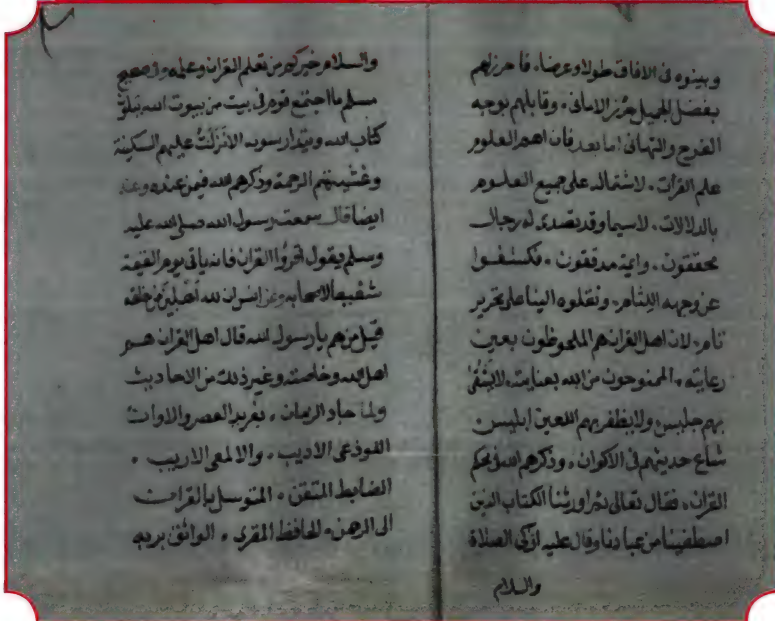 وبينوه فى الافاق طولا وعرضا، فاحرزلهم
بفضل الجميل عزز الامانى، وقابلهم بوجه
الفرح والتهانى اما بعد فان اهم العلوم
علم القرات، لاشتماله على جميع العلوم
بالدلالات، لاسيما وقد تصدى له رجال
محققون، وايمة مدققون، فكشفوا
عن وجهه اللثام، ونقلوه الينا على تحرير
تام، لان اهل القران هم الملحوظون بعين
رعايته، الممنوحون من الله بعنايته، لايشقى
بهم جليس ولايظفر بهم اللعين ابليس
شاع حديثهم فى الاكوان، وذكرهم الله فى محكم
القران، فقال تعالى ثم اورثنا الكتاب الذين
اصطفينا من عبادنا وقال عليه ازكى الصلاة
والسلام
والسلام خيركم من تعلم القران وعلمه وفى صحيح
مسلم ما اجتمع قوم فى بيت من بيوت الله يتلون
كتاب الله ويتدارسونه الا نزلت عليهم السكينة
وغشيتهم الرحمة وذكرهم الله فيمن عنده وعنه
ايضا قال سمعت رسول الله صلى الله عليه
وسلم يقول اقرؤا القران فانه ياتى يوم القيمة
شفيعا لاصحابه وعن انس ان لله اهلين من خلقه
قيل من هم يا رسول الله قال اهل القران هم
اهل الله وخاصته وغير ذلك من الاحاديث
ولما جاد الزمان، بفريد العصر والاوان
اللوذعى الاديب، والالمعى الاريب،
الضابط المتقن، المتوسل بالقرات
الى الرحمن، الحافظ المقرى، الواثق بربه